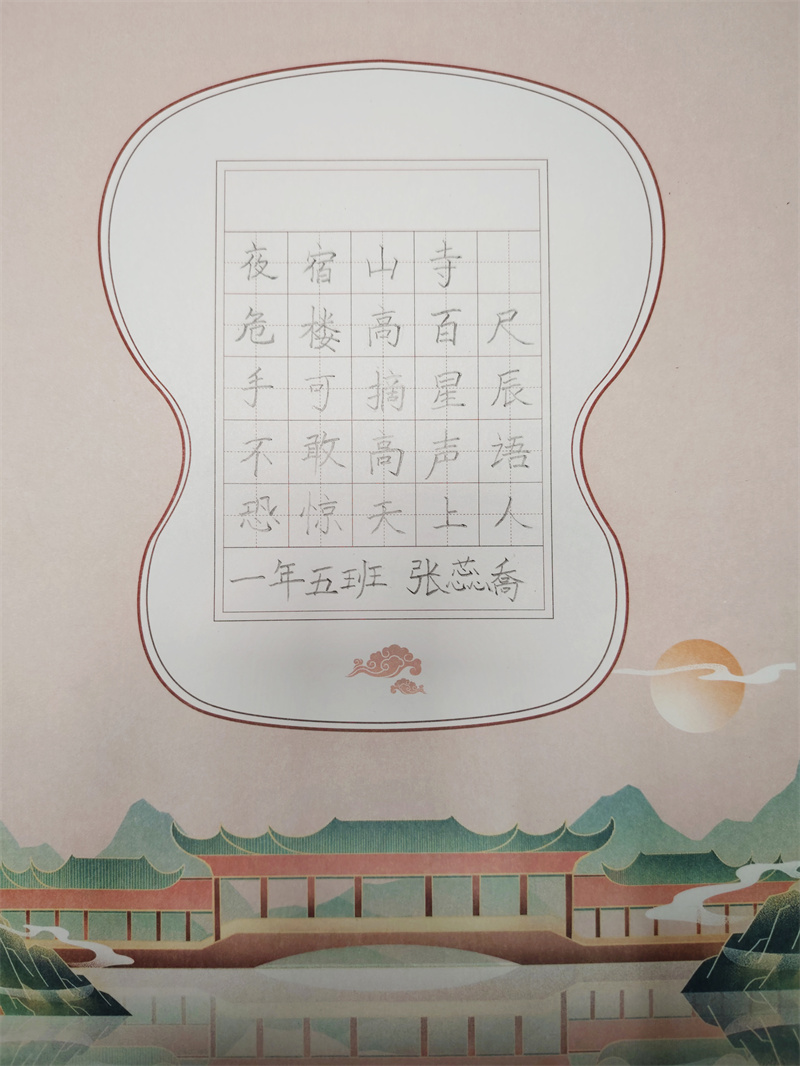 夜宿山寺
危楼高百尺
手可摘星辰
不敢高声语
恐惊天上人
一年五班 张蕊喬